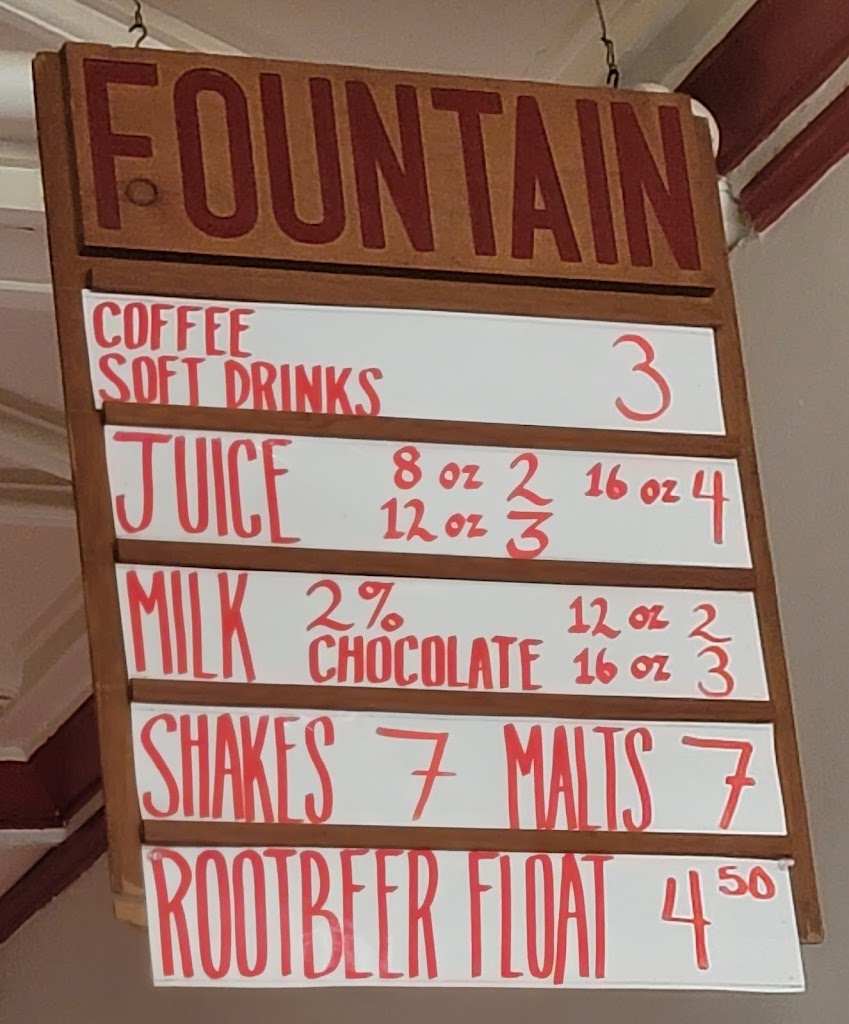 FOUNTAIN
COFFEE
SOFT DRINKS 3
JUICE 8 oz 2 16 oz 4
12 oz 3
MILK 2% 12 oz 2
CHOCOLATE 16 oz 3
SHAKES 7 MALTS 7
ROOTBEER FLOAT 4 50